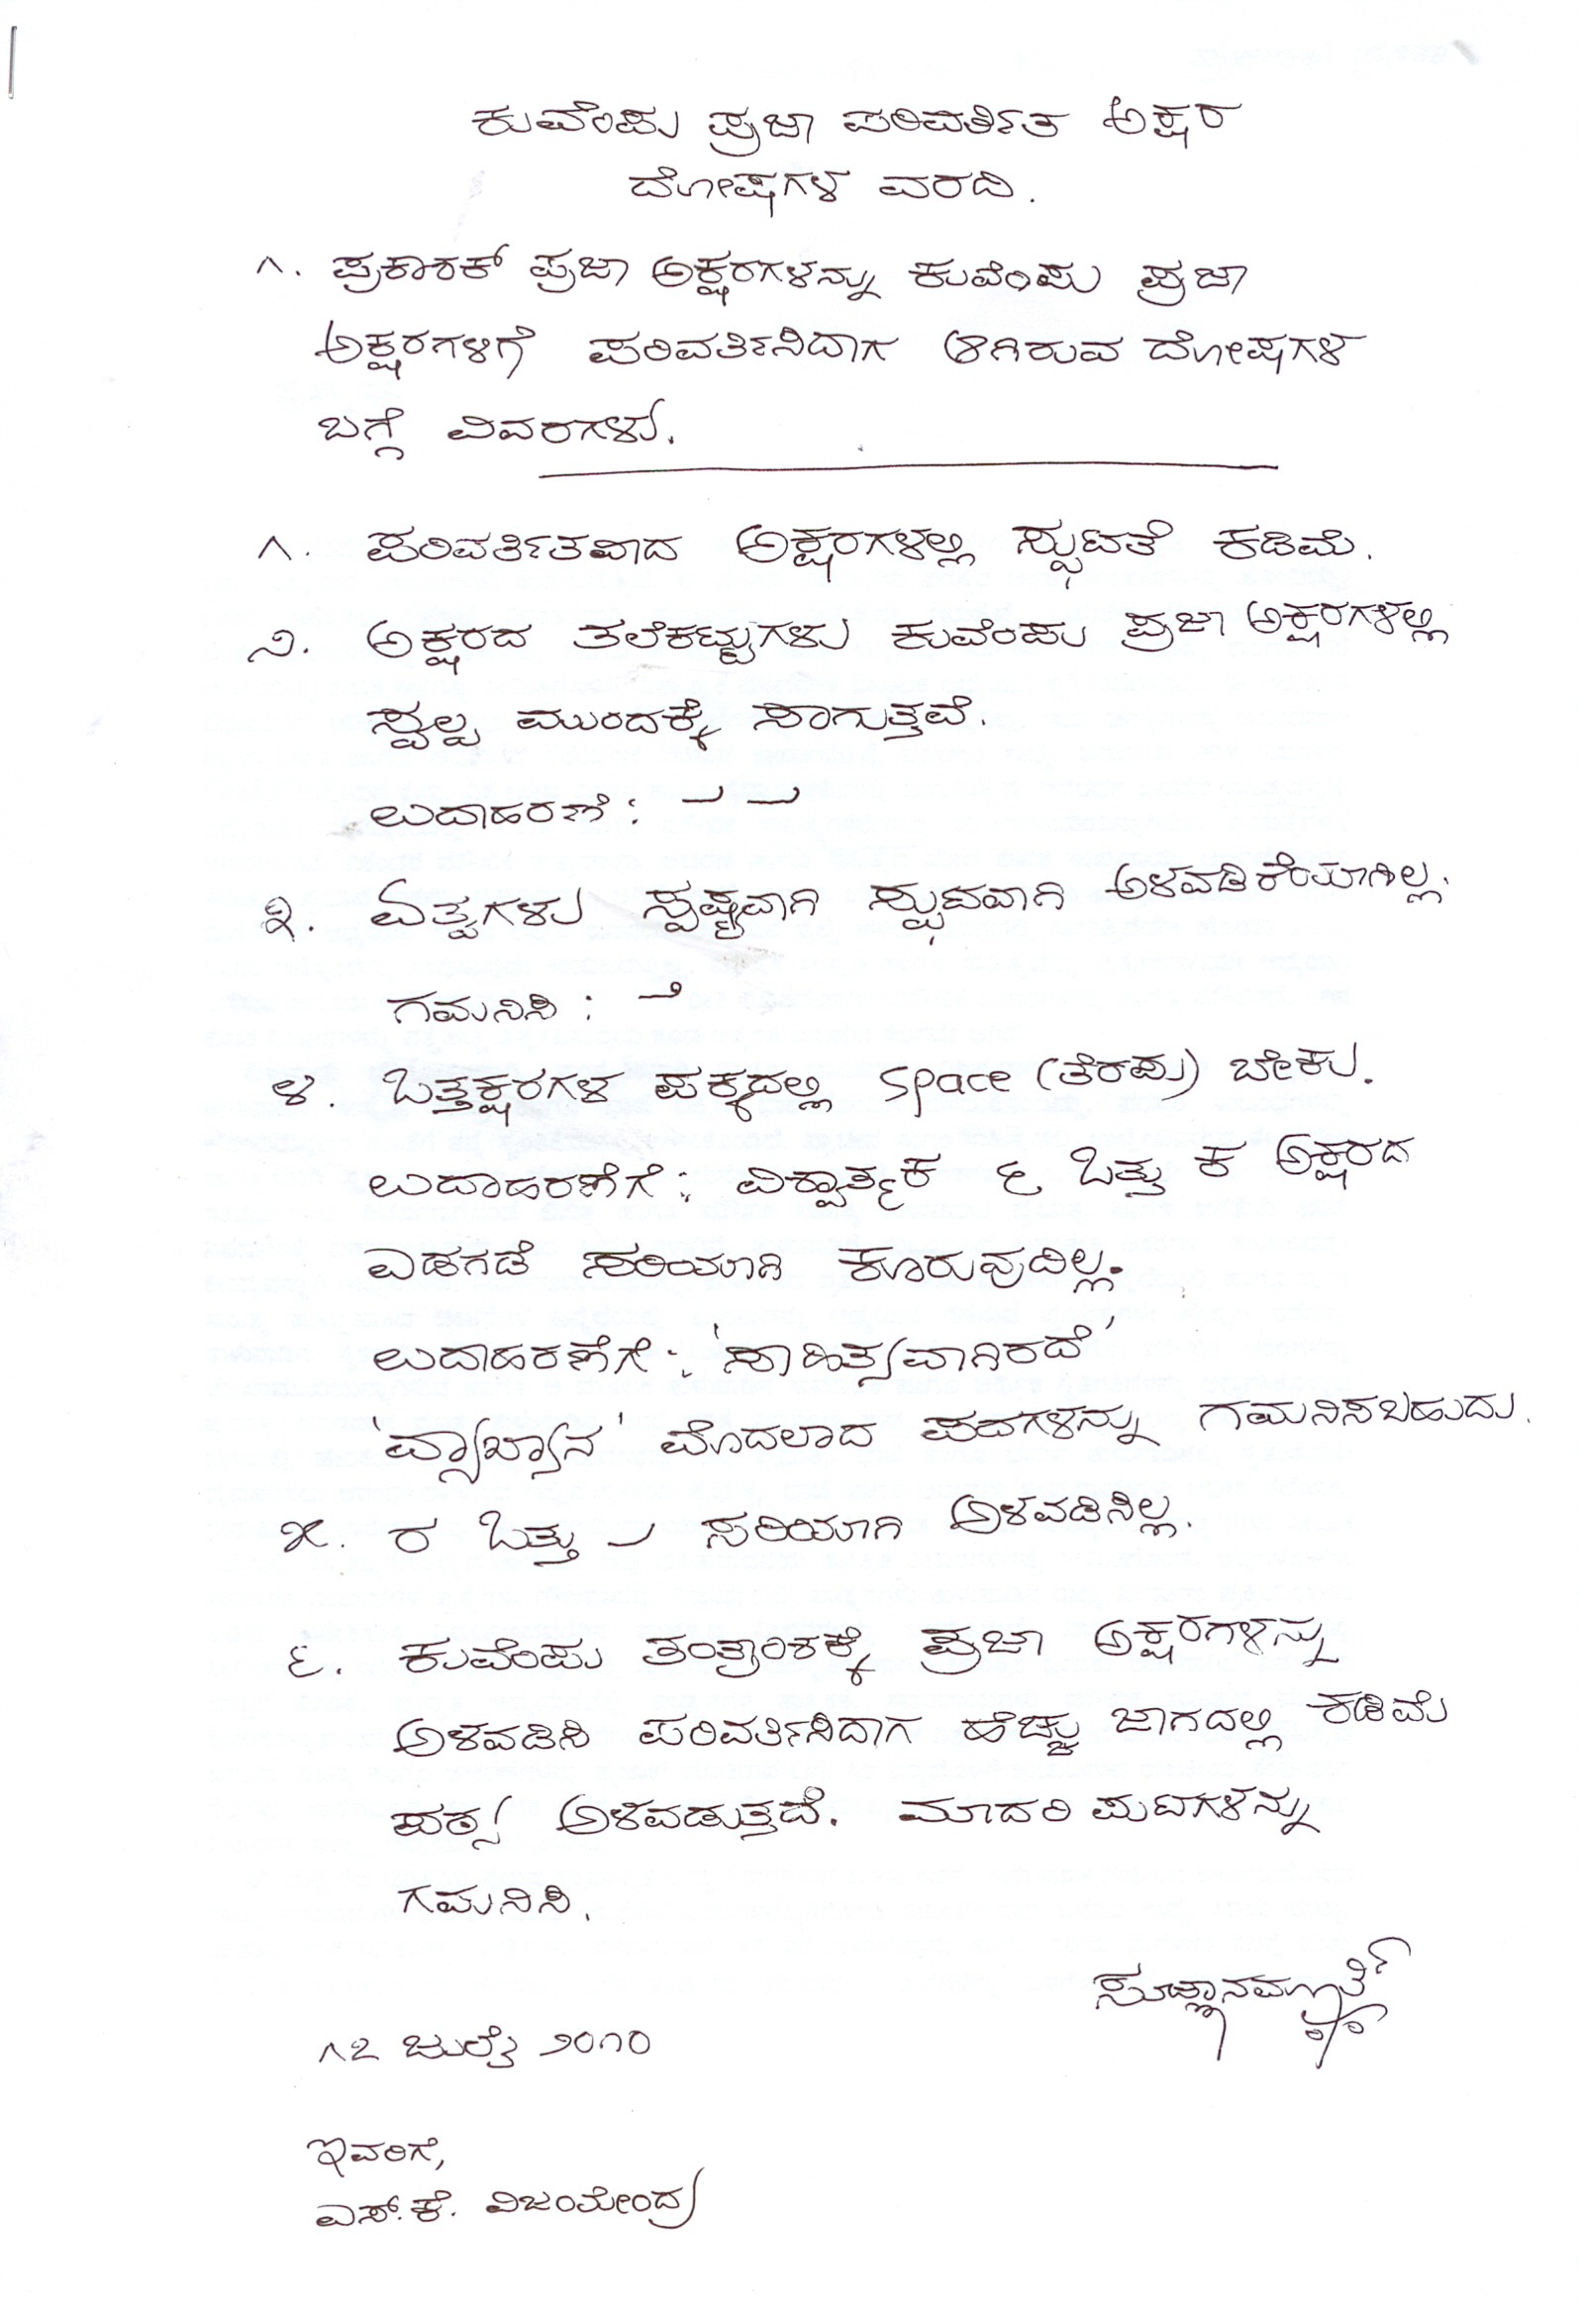 ಕುವೆಂಪು ಪ್ರಜಾ ಪರಿವರ್ತಿತ ಅಕ್ಷರ
ದೋಷಗಳ ವರದಿ.
೧. ಪ್ರಕಾಶಕ್ ಪ್ರಜಾ ಅಕ್ಷರಗಳನ್ನು ಕುವೆಂಪು ಪ್ರಜಾ
ಅಕ್ಷರಗಳಿಗೆ ಪರಿವರ್ತಿಸಿದಾಗ ಆಗಿರುವ ದೋಷಗಳ
ಬಗ್ಗೆ ವಿವರಗಳು.
೧. ಪರಿವರ್ತಿತವಾದ ಅಕ್ಷರಗಳಲ್ಲಿ ಸ್ಫುಟತೆ ಕಡಿಮೆ.
೨. ಅಕ್ಷರದ ತಲೆಕಟ್ಟುಗಳು ಕುವೆಂಪು ಪ್ರಜಾ ಅಕ್ಷರಗಳಲ್ಲಿ
ಸ್ವಲ್ಪ ಮುಂದಕ್ಕೆ ಸಾಗುತ್ತವೆ.
ಉದಾಹರಣೆ :
೩. ಏತ್ವಗಳು ಸ್ಪಷ್ಟವಾಗಿ ಸ್ಫುಟವಾಗಿ ಅಳವಡಿಕೆಯಾಗಿಲ್ಲ.
ಗಮನಿಸಿ :
೪. ಒತ್ತಕ್ಷರಗಳ ಪಕ್ಕದಲ್ಲಿ space (ತೆರಪು) ಬೇಕು.
ಉದಾಹರಣೆಗೆ : ಒತ್ತು ಕ ಅಕ್ಷರದ
ಎಡಗಡೆ ಸರಿಯಾಗಿ ಕೂರುವುದಿಲ್ಲ.
ಉದಾಹರಣೆಗೆ : 'ಸಾಹಿತ್ಯವಾಗಿರದೆ'
'ವ್ಯಾಖ್ಯಾನ' ಮೊದಲಾದ ಪದಗಳನ್ನು ಗಮನಿಸಬಹುದು.
೫. ರ ಒತ್ತು ಸರಿಯಾಗಿ ಅಳವಡಿಸಿಲ್ಲ.
೬. ಕುವೆಂಪು ತಂತ್ರಾಂಶಕ್ಕೆ ಪ್ರಜಾ ಅಕ್ಷರಗಳನ್ನು
ಅಳವಡಿಸಿ ಪರಿವರ್ತಿಸಿದಾಗ ಹೆಚ್ಚು ಜಾಗದಲ್ಲಿ ಕಡಿಮೆ
ಪಠ್ಯ ಅಳವಡುತ್ತದೆ. ಮಾದರಿ ಪುಟಗಳನ್ನು
ಗಮನಿಸಿ.
೧೭ ಜುಲೈ ೨೦೧೦
ಇವರಿಗೆ,
ಎಸ್.ಕೆ. ವಿಜಯೇಂದ್ರ